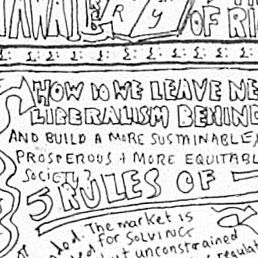 OF RI
HOW DO WE LEAVE NE
LIBERALISM BEHIN
AND BUILD A MORE SUSTAINABLE,
PROSPEROUS + MORE EQUITABL
SOCIETY?
5 RULES OF
The market is
for SOLVING
unconstrained
regulat